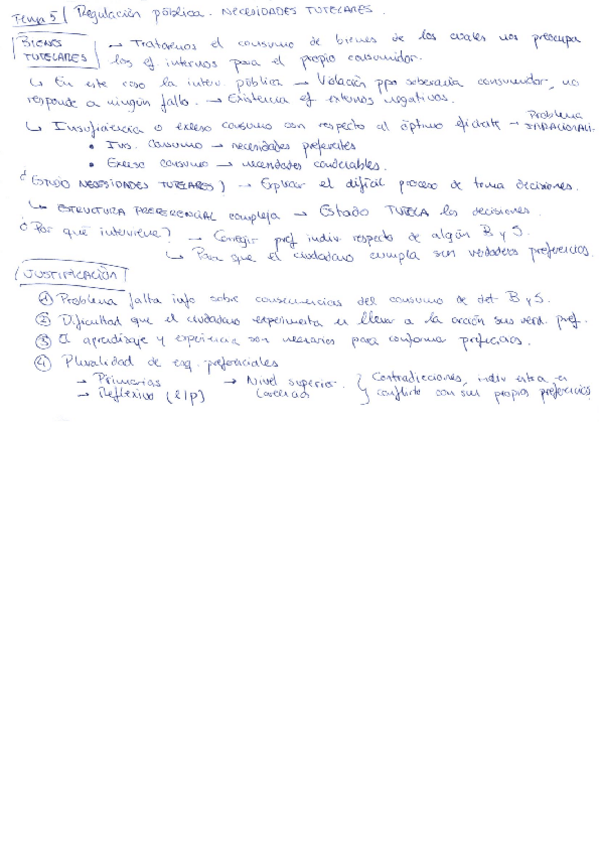 Tema 5 / Regulación pública. NECESIDADES TUTELARES.
BIENES TUTELARES → Trataremos el consumo de bienes de los cuales nos preocupa
los ef internos para el propio consumidor.
↳ En este caso la interv pública → Violación ppo soberanía consumidor, no
responde a ningún fallo. → Existencia ef externos negativos.
↳ Insuficiencia o exceso consumo con respecto al óptimo → Problema
• Ins. Consumo → necesidades preferentes
• Exceso consumo → necesidades
¿ESTUDIO NECESIDADES TUTELARES) → Explicar el difícil proceso de toma decisiones.
↳ ESTRUCTURA PREFERENCIAL compleja → Estado TUTELA las decisiones.
¿Por qué interviene? → Corregir pref indiv respecto de algún B y S.
↳ Para que el ciudadano cumpla sus verdaderas preferencias.
JUSTIFICACIÓN
① Problema falta info sobre consecuencias del consumo de det B y S.
② Dificultad que el ciudadano experimenta en llevar a la acción sus verd. pref.
③ El aprendizaje y experiencia son necesarios para conformar preferencias.
④ Pluralidad de esq. preferenciales
→ Primarias → Nivel superior. { Contradicciones, indiv entra en
→ Reflexivo (l/p) } conflicto con sus propias preferencias